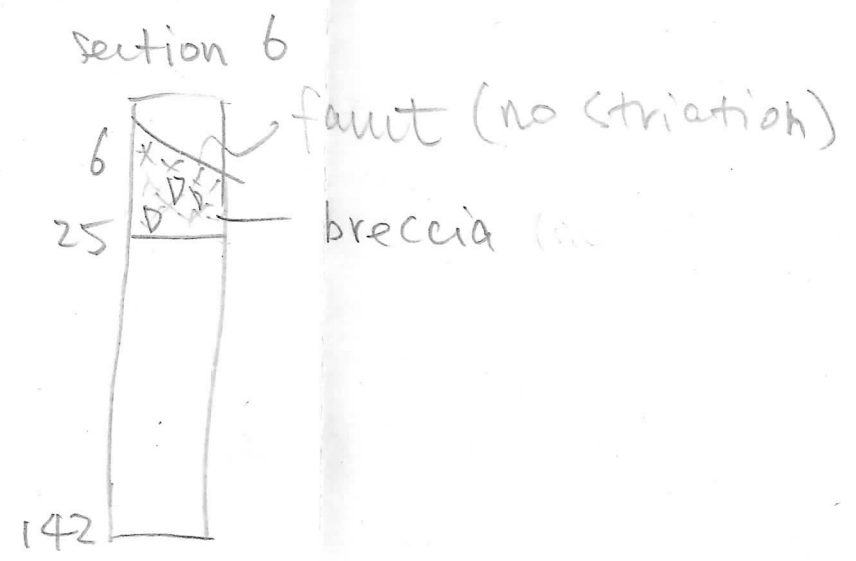 section 6
fault (no striation)
6
25
breccia
142